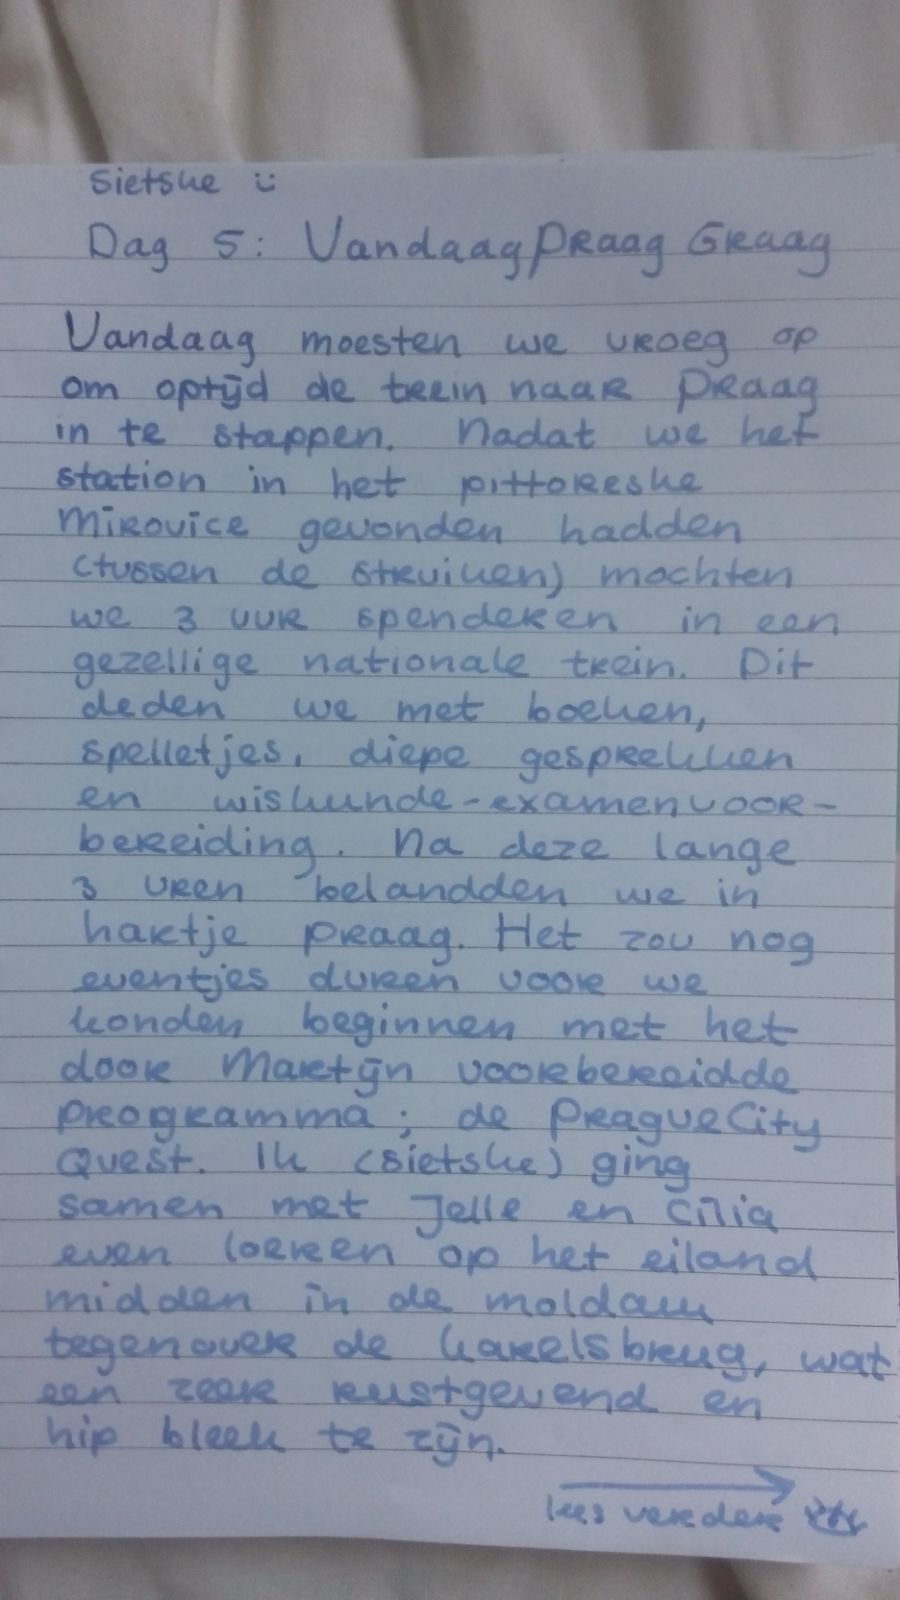 Sietske ü
Dag 5: Vandaag Praag Graag
Vandaag moesten we vroeg op
om optijd de trein naar Praag
in te stappen. Nadat we het
station in het pittoreske
Mirovice gevonden hadden
(tussen de struiken) mochten
we 3 uur spenderen in een
gezellige nationale trein. Dit
deden we met boeken,
spelletjes, diepe gesprekken
en wiskunde-examenvoor-
bereiding. Na deze lange
3 uren belandden we in
hartje Praag. Het zou nog
eventjes duren voor we
konden beginnen met het
door Martijn voorbereidde
programma; de PragueCity
Quest. Ik (Sietske) ging
samen met Jelle en Cilia
even loeren op het eiland
midden in de moldau
tegenover de karelsbrug, wat
een zeer rustgevend en
hip bleek te zijn.
lees verder